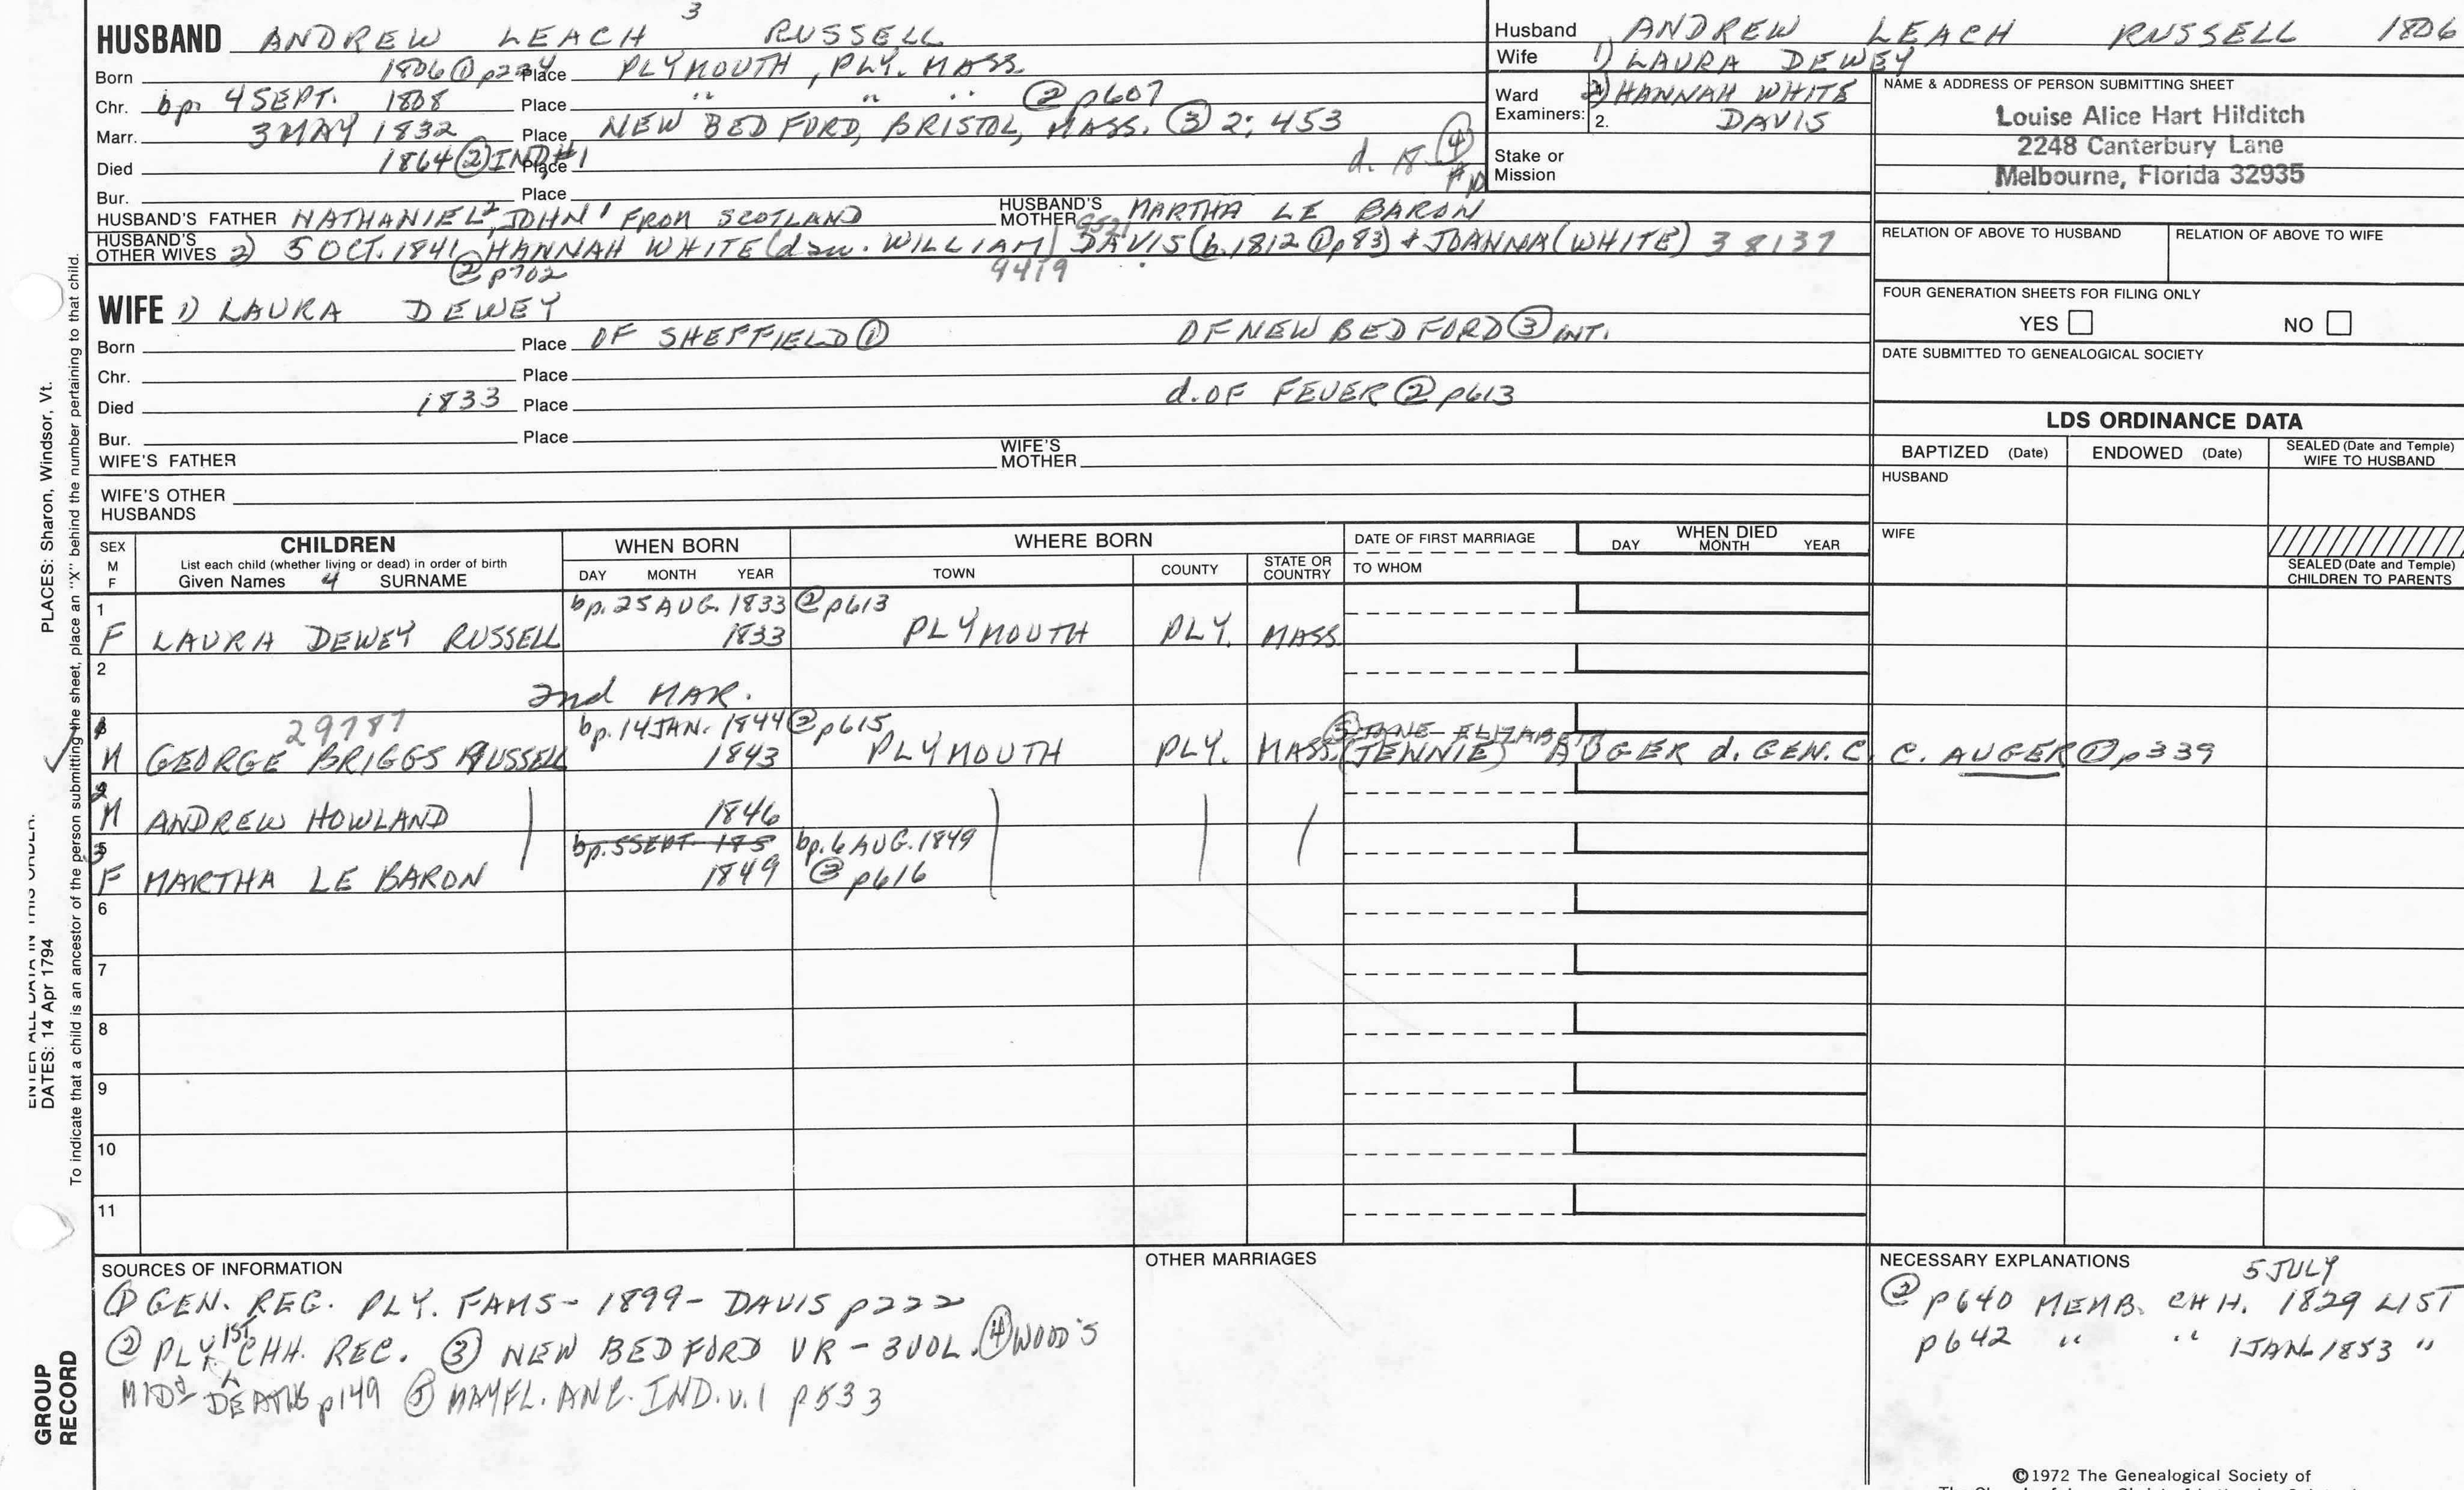 3
HUSBAND ANDREW LEACH RUSSELL
Born 1806 ① Place PLYMOUTH, PLY. MASS.
Chr. bp. 4 SEPT. 1808 Place " " " ② p607
Marr. 3 MAY 1832 Place NEW BEDFORD, BRISTOL, MASS. ③ 2: 453
Died 1864 ② IND#1 Place d. ④
Bur. Place
HUSBAND'S FATHER NATHANIEL² JOHN¹ FROM SCOTLAND HUSBAND'S MOTHER MARTHA LE BARON
9521
HUSBAND'S OTHER WIVES 2) 5 OCT. 1841 HANNAH WHITE (dau. WILLIAM DAVIS (b. 1812 ① p83) + JOANNA (WHITE) 38137
② p702 9419
WIFE 1) LAURA DEWEY
Born Place OF SHEFFIELD ① OF NEW BEDFORD ③ INT.
Chr. Place
Died 1833 Place d. OF FEVER ② p613
Bur. Place
WIFE'S FATHER WIFE'S MOTHER
WIFE'S OTHER HUSBANDS
Husband ANDREW LEACH RUSSELL 1806
Wife 1) LAURA DEWEY
Ward Examiners: 2) HANNAH WHITE
2. DAVIS
Stake or Mission
NAME & ADDRESS OF PERSON SUBMITTING SHEET
Louise Alice Hart Hilditch
2248 Canterbury Lane
Melbourne, Florida 32935
RELATION OF ABOVE TO HUSBAND RELATION OF ABOVE TO WIFE
FOUR GENERATION SHEETS FOR FILING ONLY
YES NO
DATE SUBMITTED TO GENEALOGICAL SOCIETY
LDS ORDINANCE DATA
BAPTIZED (Date) ENDOWED (Date) SEALED (Date and Temple) WIFE TO HUSBAND
HUSBAND
WIFE
SEALED (Date and Temple)
CHILDREN TO PARENTS
SEX M F CHILDREN WHEN BORN WHERE BORN DATE OF FIRST MARRIAGE WHEN DIED
List each child (whether living or dead) in order of birth
Given Names 4 SURNAME DAY MONTH YEAR TOWN COUNTY STATE OR COUNTRY TO WHOM DAY MONTH YEAR
1 bp. 25 AUG. 1833 ② p613
F LAURA DEWEY RUSSELL 1833 PLYMOUTH PLY. MASS.
2
2nd MAR.
29787 bp. 14 JAN. 1844 ② p615 ⑤ JANE ELIZABETH
M GEORGE BRIGGS RUSSELL 1843 PLYMOUTH PLY. MASS. (JENNIE) AUGER d. GEN. C. C. AUGER ① p339
2
M ANDREW HOWLAND 1846
bp. 5 SEPT. 185 bp. 6 AUG. 1849
F MARTHA LE BARON 1849 ② p616
6
7
8
9
10
11
SOURCES OF INFORMATION
① GEN. REG. PLY. FAMS - 1899 - DAVIS p222
② PLY. 1ST CHH. REC. ③ NEW BEDFORD VR - 3 VOL. ④ WOOD'S
DEATHS p149 ⑤ MAYFL. ANC. IND. v.1 p533
OTHER MARRIAGES
NECESSARY EXPLANATIONS 5 JULY
② p640 MEMB. CHH. 1829 LIST
p642 " " 1 JAN. 1853 "
©1972 The Genealogical Society of
PLACES: Sharon, Windsor, Vt.
ENTER ALL DATA IN THIS ORDER:
DATES: 14 Apr 1794
To indicate that a child is an ancestor of the person submitting the sheet, place an "X" behind the number pertaining to that child.
GROUP
RECORD